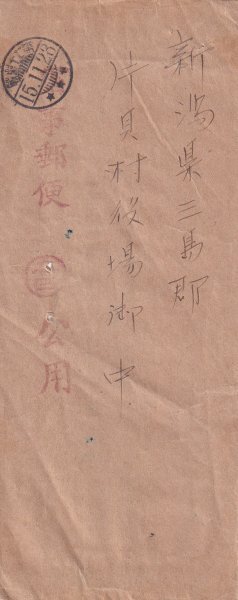 新潟県三島郡
片貝村役場御中
事郵便
公用
15.11.23